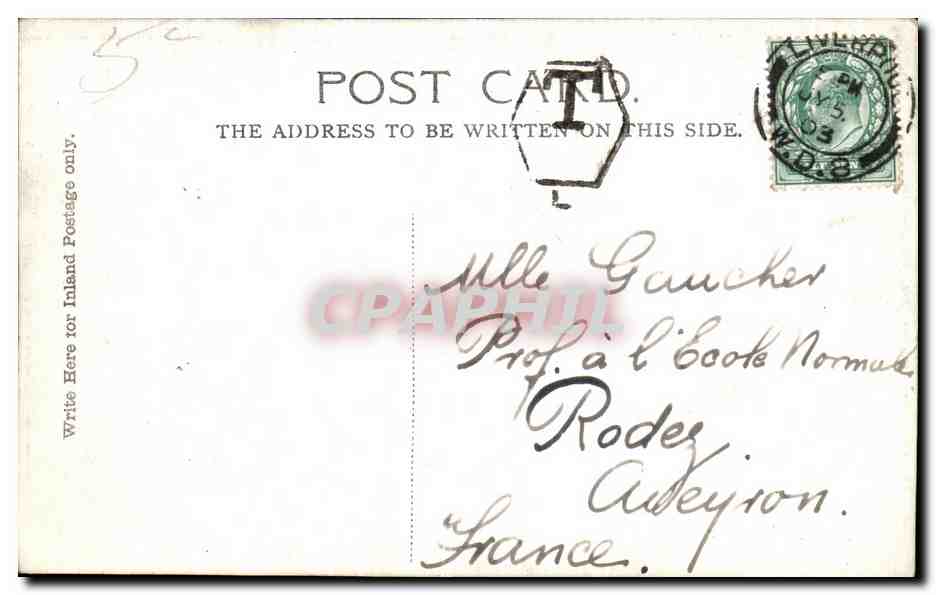 5c
POST CARD.
THE ADDRESS TO BE WRITTEN ON THIS SIDE.
T
L
LIVERPOOL
PM
JY 5
03
W.D.8
Write Here for Inland Postage only.
CPAPHIL
Mlle Gaucher
Prof. à l'Ecole Normale
Rodez
Aveyron.
France.